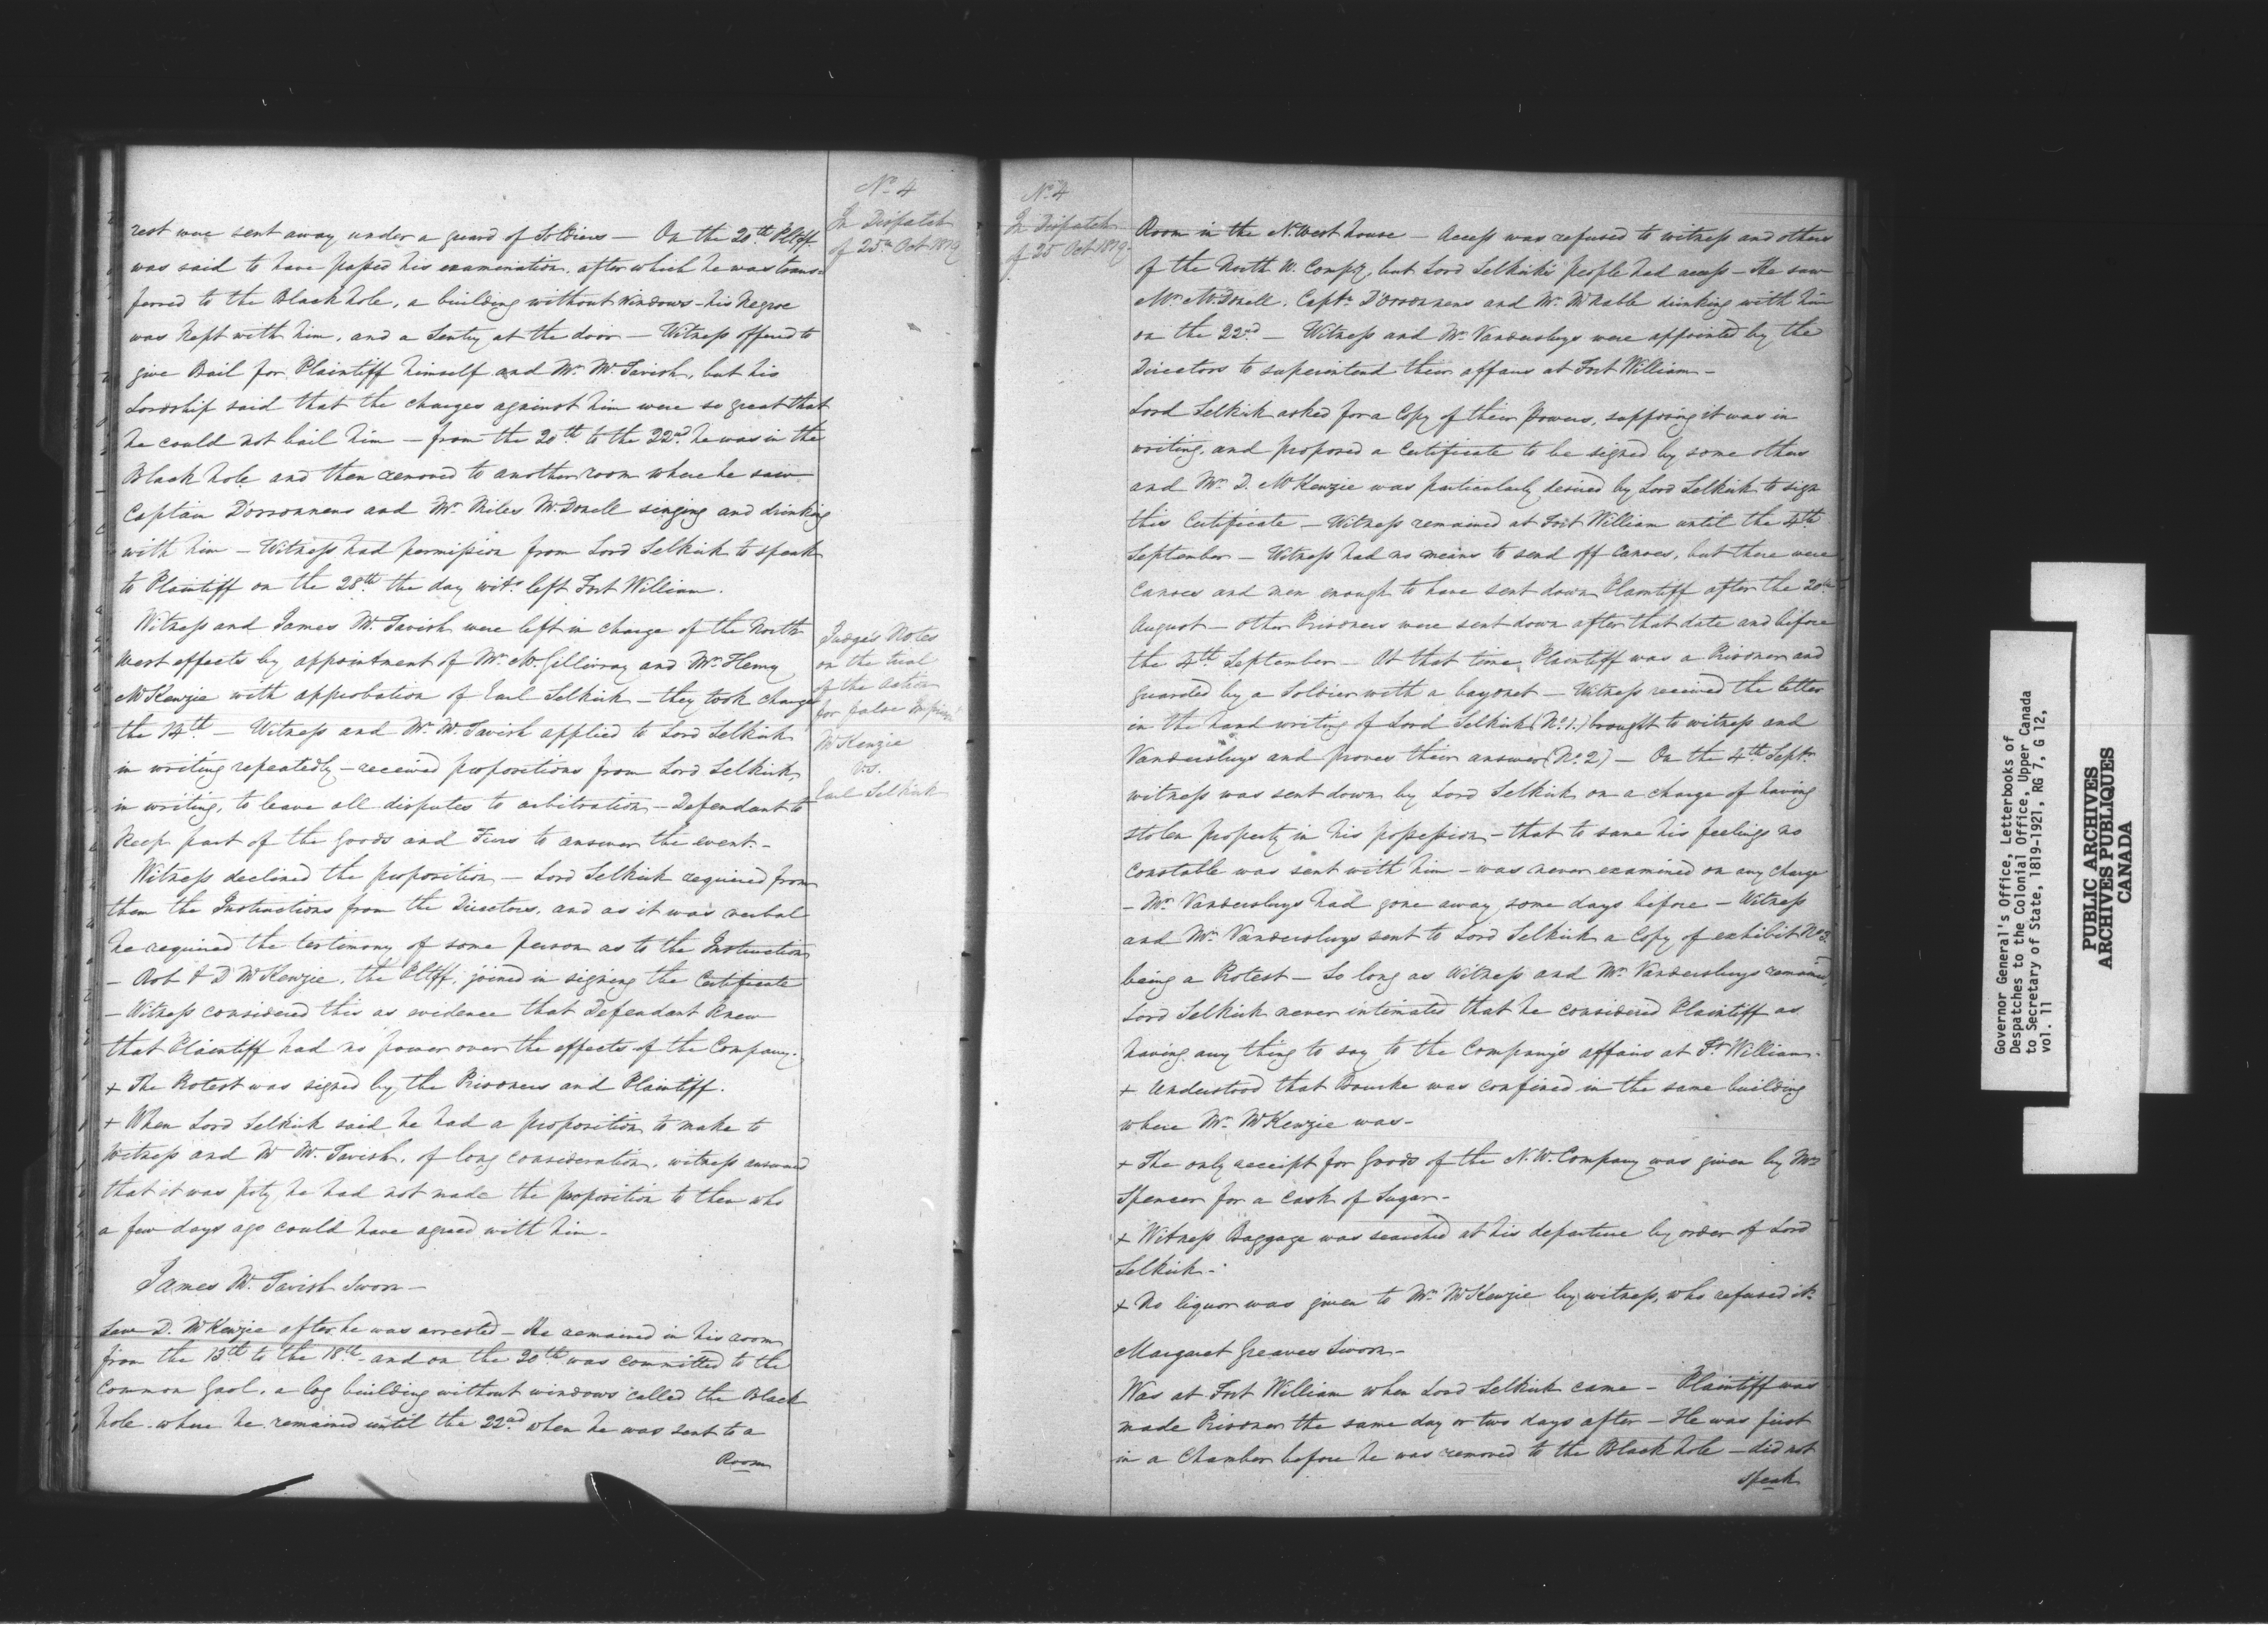 No. 4
In Dispatch
of 25th Oct 1819
rest were sent away under a guard of Soldiers — On the 20th Pltff
was said to have passed his examination, after which he was trans-
ferred to the Black hole, a building without Windows – his Negroe
was kept with him, and a Sentry at the door — Witness offered to
give Bail for Plaintiff himself and Mr. McTavish, but his
Lordship said that the charges against him were so great that
he could not bail him — from the 20th to the 22nd he was in the
Black hole and then removed to another room where he saw
Captain D'orsonnens and Mr. Miles McDonell singing and drinking
with him — Witness had permission from Lord Selkirk to speak
to Plaintiff on the 28th the day wits. left Fort William.
Witness and James McTavish were left in charge of the North
West effects by appointment of Mr. McGillivray and Mr. Henry
McKenzie with approbation of Earl Selkirk — they took charge
the 14th — Witness and Mr. McTavish applied to Lord Selkirk
in writing repeatedly – received propositions from Lord Selkirk,
in writing, to leave all disputes to arbitration – Defendant to
keep part of the Goods and Furs to answer the event. –
Witness declined the proposition — Lord Selkirk required from
them the Instructions from the Directors, and as it was verbal
he required the testimony of some person as to the Instructions
– Rob & D McKenzie, the Pltff, joined in signing the Certificate
– Witness considered this as evidence that Defendant knew
that Plaintiff had no power over the effects of the Company.
+ The Protest was signed by the Prisoners and Plaintiff.
+ When Lord Selkirk said he had a proposition to make to
Witness and Mr McTavish, of long consideration, witness answered
that it was pity he had not made the proposition to then who
a few days ago could have agreed with him –
James McTavish Sworn —
Saw D. McKenzie after he was arrested – He remained in his room
from the 13th to the 18th and on the 20th was committed to the
Common Gaol, a log building without windows called the Black
hole where he remained until the 22nd when he was sent to a
Room
Judge's Notes
on the trial
of the Action
for false
McKenzie
vs.
Earl Selkirk
No. 4
In Dispatch
of 25 Oct 1819
Room in the N. West house — Access was refused to witness and others
of the North W. Compy, but Lord Selkirk's people had access – He saw
Mr. McDonell, Captn. D'orsonnens and Mr. McNabb drinking with him
on the 22nd — Witness and Mr. Vandersluys were appointed by the
Directors to superintend their affairs at Fort William –
Lord Selkirk asked for a Copy of their Powers, supposing it was in
writing, and proposed a Certificate to be signed by some others
and Mr. D. McKenzie was particularly desired by Lord Selkirk to sign
this Certificate — Witness remained at Fort William until the 4th
September — Witness had no means to send off Canoes, but there were
Canoes and men enough to have sent down Plaintiff after the 20th
August – other Prisoners were sent down after that date and before
the 4th September — At that time Plaintiff was a Prisoner and
guarded by a Soldier with a bayonet — Witness received the letter
in the hand writing of Lord Selkirk (No. 1.) brought to witness and
Vandersluys and proves their answer (No. 2) — On the 4th Septr.
witness was sent down by Lord Selkirk on a charge of having
stolen property in his possession – that to save his feelings no
Constable was sent with him – was never examined on any charge
– Mr. Vandersluys had gone away some days before – Witness
and Mr. Vandersluys sent to Lord Selkirk a Copy of exhibit No. 3
being a Protest – So long as Witness and Mr. Vandersluys remained,
Lord Selkirk never intimated that he considered Plaintiff as
having any thing to say to the Company's affairs at Ft. William –
+ Understood that Bourke was confined in the same building
where Mr. McKenzie was –
+ The only receipt for Goods of the N. W. Company was given by Mr
Spencer for a Cask of Sugar –
+ Witness Baggage was searched at his departure by order of Lord
Selkirk –
+ No liquor was given to Mr. McKenzie by witness, who refused it.
Margaret Greaves Sworn –
Was at Fort William when Lord Selkirk came – Plaintiff was
made Prisoner the same day or two days after – He was first
in a Chamber before he was removed to the Black hole – did not
speak
Governor General's Office, Letterbooks of
Despatches to the Colonial Office, Upper Canada
to Secretary of State, 1819-1921, RG 7, G 12,
vol. 11
PUBLIC ARCHIVES
ARCHIVES PUBLIQUES
CANADA